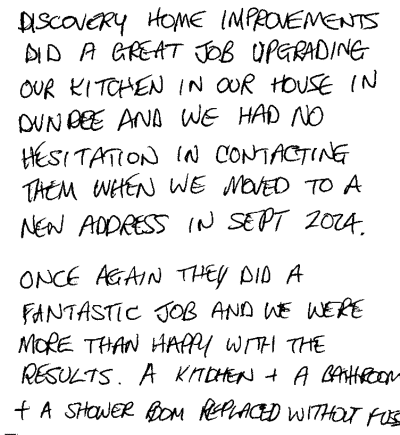 DISCOVERY HOME IMPROVEMENTS
DID A GREAT JOB UPGRADING
OUR KITCHEN IN OUR HOUSE IN
DUNDEE AND WE HAD NO
HESITATION IN CONTACTING
THEM WHEN WE MOVED TO A
NEW ADDRESS IN SEPT 2024.
ONCE AGAIN THEY DID A
FANTASTIC JOB AND WE WERE
MORE THAN HAPPY WITH THE
RESULTS. A KITCHEN + A BATHROOM
+ A SHOWER ROOM REPLACED WITHOUT FUS